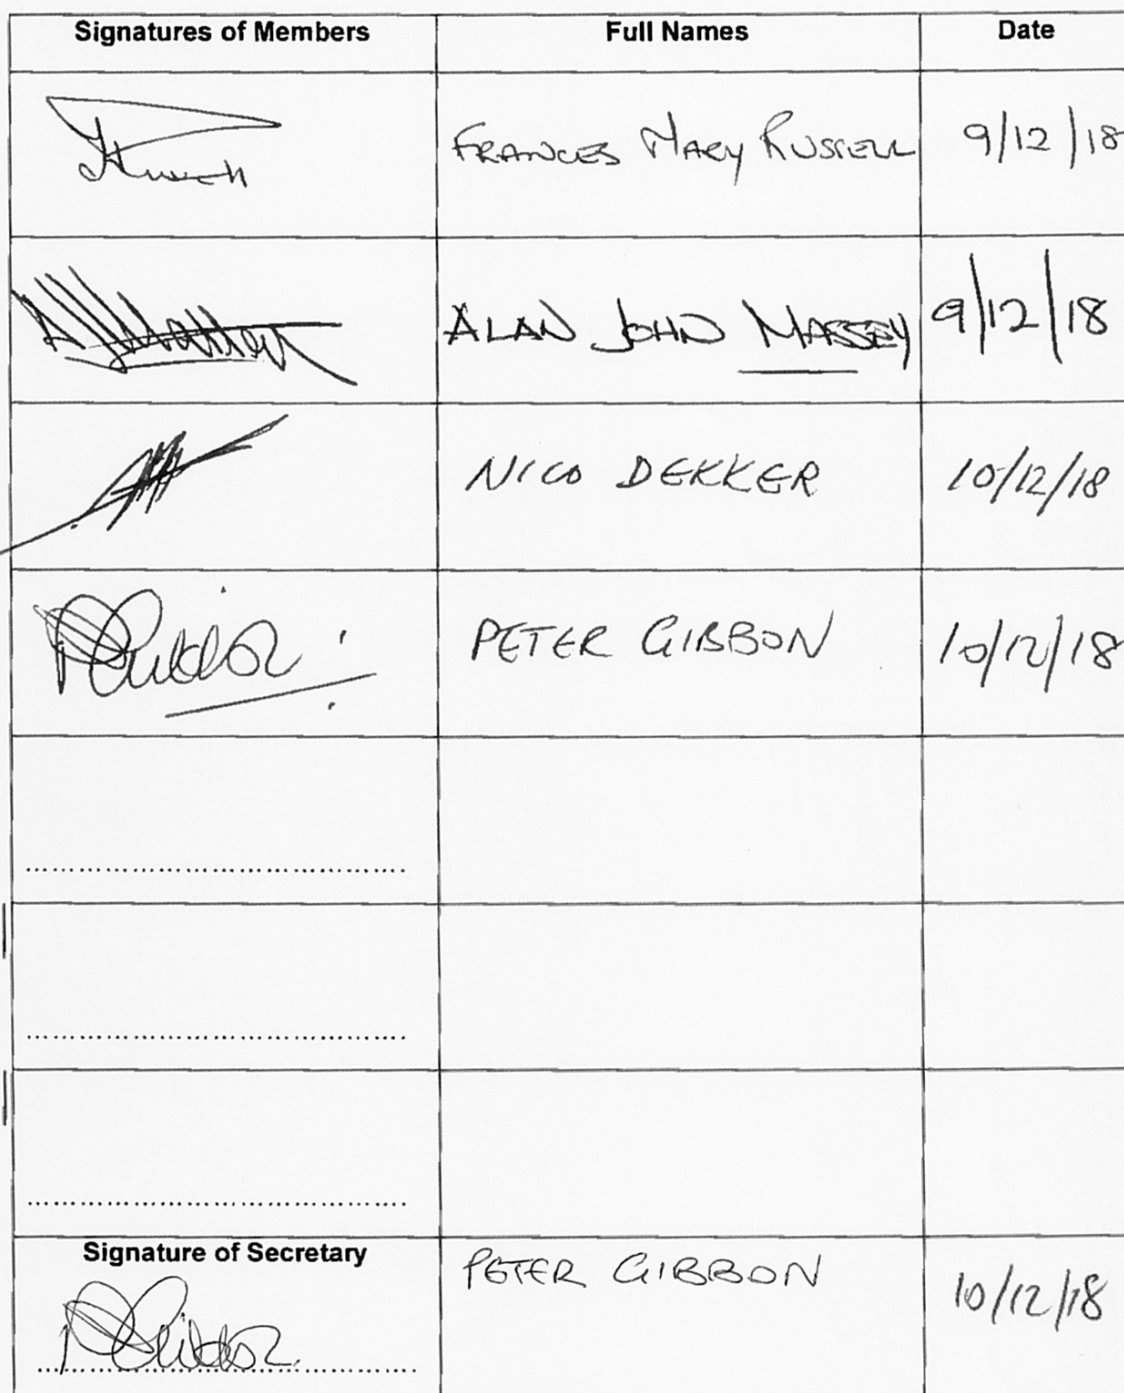 Signatures of Members Full Names Date
FRANCES MARY RUSSELL 9/12/18
ALAN JOHN MASSEY 9/12/18
NICO DEKKER 10/12/18
PETER GIBBON 10/12/18
Signature of Secretary
PETER GIBBON 10/12/18